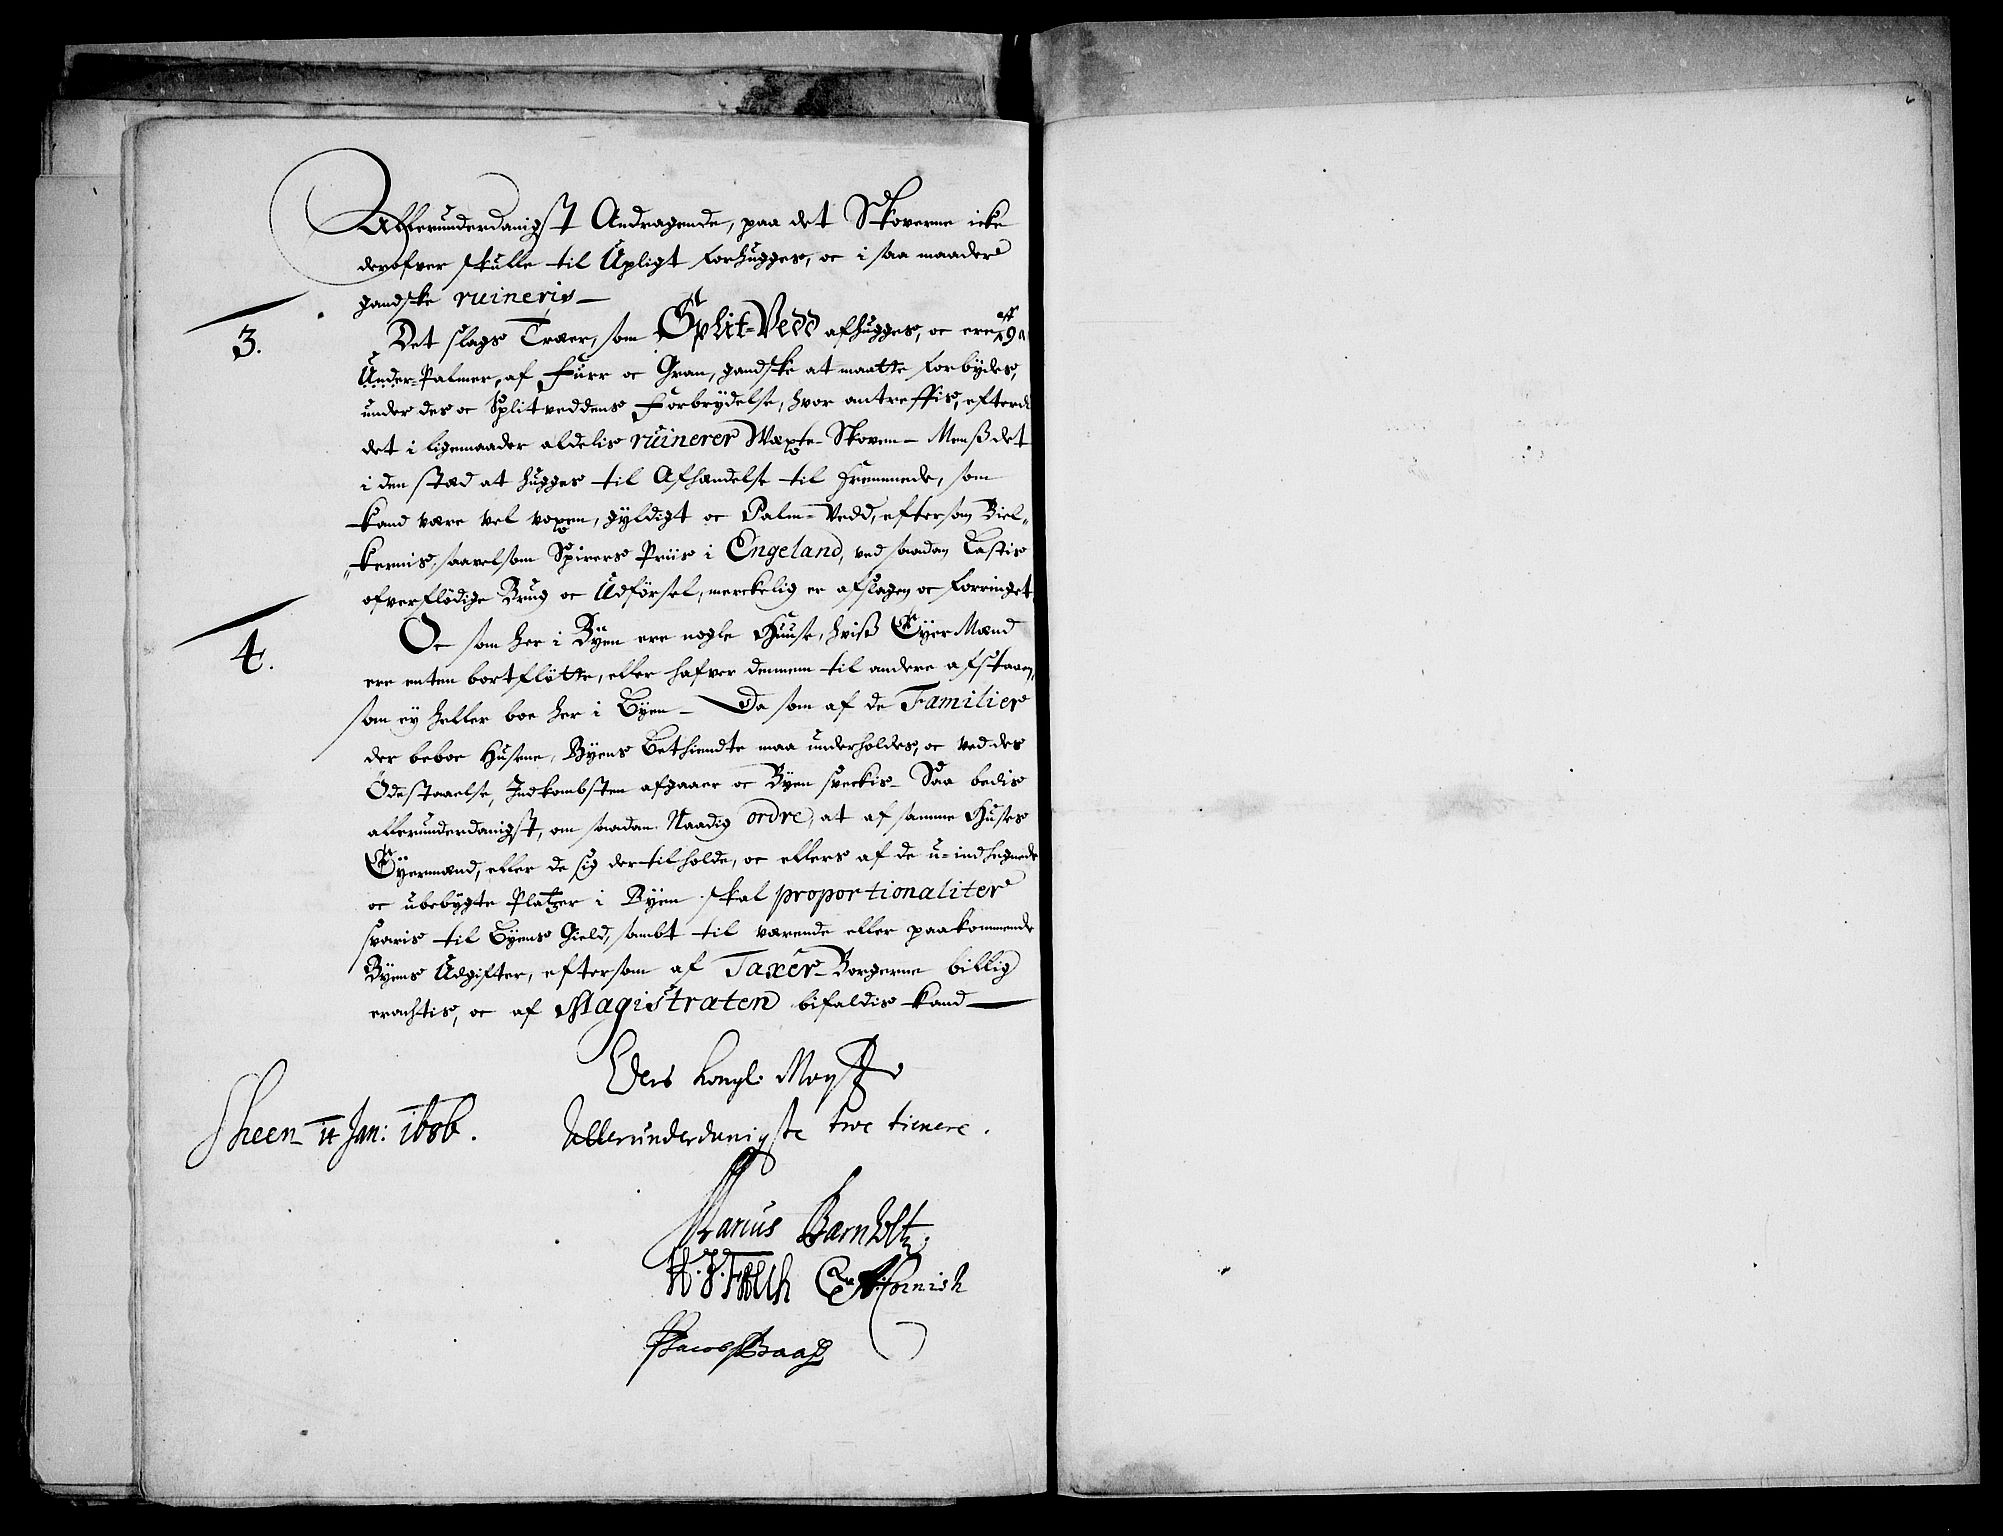 Allerunderdanigst Andragende, paa det Skoverne icke
derofver skulle til Upligt forhugges, oc i saa maader
gandske ruineris—
3.
Det slags Træer, som Split-Vedd afhugges, oc ere aff 9
Under-Palmer, af Furr oc Gran, gandske at maatte forbydes,
under des oc Splitveddens Forbrydelse, hvor antreffis, efterdi
det i ligemaader aldelis ruinerer Wæxte-Skoven— Menß det
i den stæd at hugges til Afhændelse til fremmede, som
kand være vel voxen, gyldigt oc Palm-Vedd, eftersom Biel-
kernis, saavelsom Spirers Priis i Engeland, ved saadan Lastis
ofverflödige Brug oc Udförsel, merckelig er afslagen oc forringet.
4.
Oc som her i Byen ere nogle Huuse, hviß Eyer Mænd
ere enten bortflötte, eller hafver dennem til andere afstaaen,
som ey heller boe her i Byen— Da som af de Familier
der beboe Husene, Byens Bethiendte maa underholdes, oc ved des
Ödestaaelse, Indkombsten afgaaer oc Byen sveckis— Saa bedis
allerunderdanigst, om saadan Naadig ordre, at af samme Huses
Eyermænd, eller de sig dertilholde, oc ellers af de u-indhegnede
oc ubebygte Platzer i Byen skal proportionaliter
svaris til Byens Gield, sambt til værende eller paakommende
Byens Udgifter, eftersom af Taxer-Borgerne billig
erachtis, oc af Magistraten bifaldis kand—
Eders Kongl: Mayst
Allerunderdanigste troe tienere.
Sheen 11 Jan: 1686.
Marius Barnholt
H. J. Falch C A: Cornish
Jacob Baas